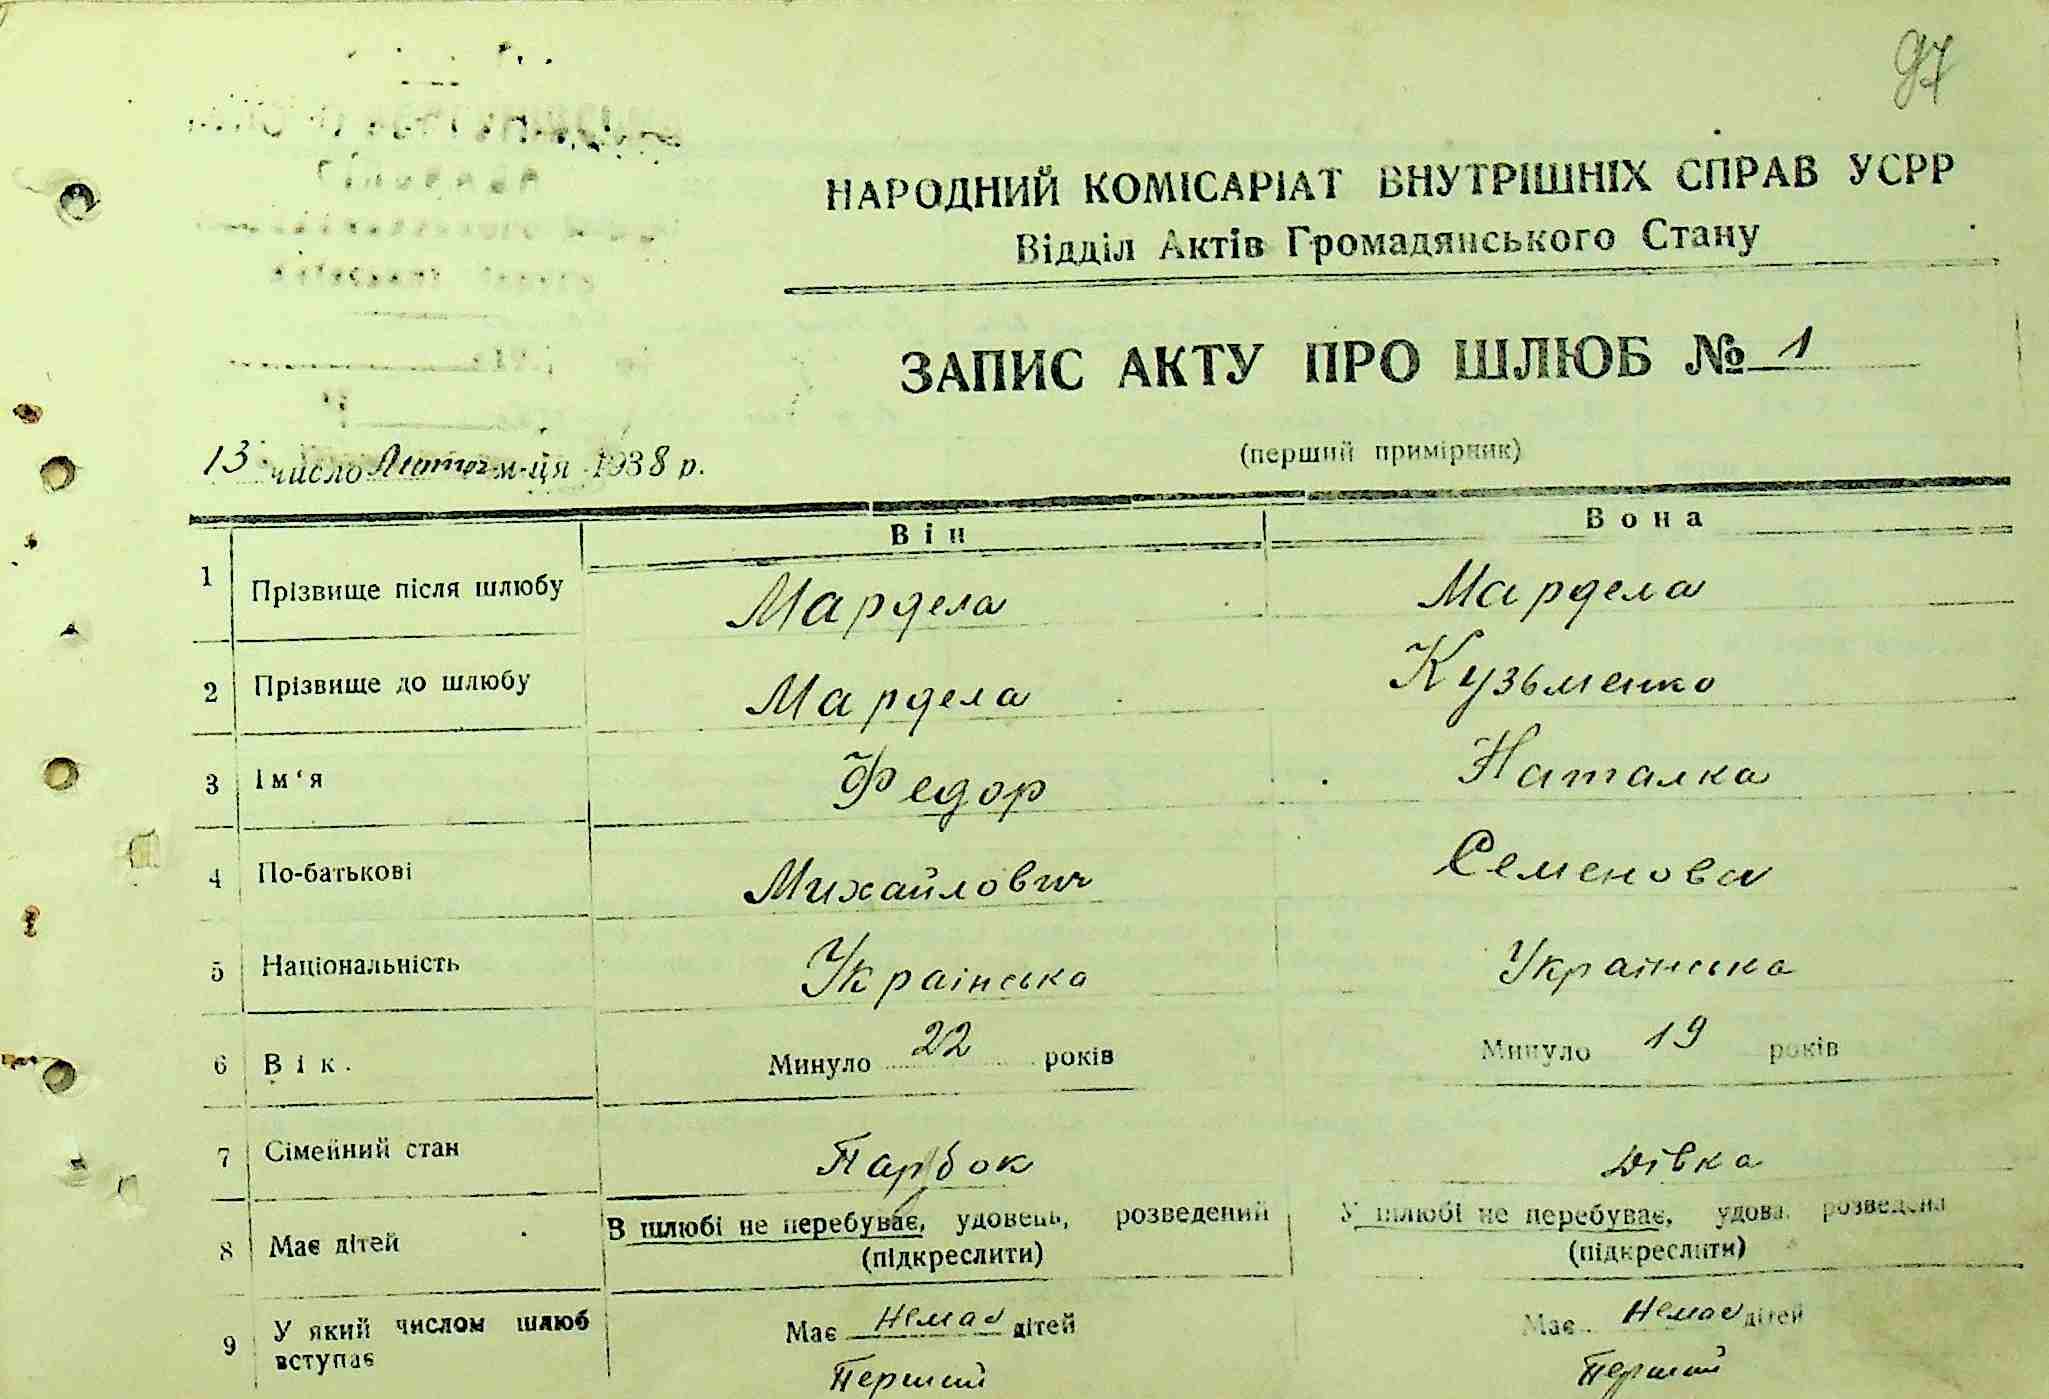 97
НАРОДНИЙ КОМІСАРІАТ ВНУТРІШНІХ СПРАВ УСРР
Відділ Актів Громадянського Стану
ЗАПИС АКТУ ПРО ШЛЮБ № 1
(перший примірник)
13 число Лютог м-ця 1938 р.
Він Вона
1 Прізвище після шлюбу Мардела Мардела
2 Прізвище до шлюбу Мардела Кузьменко
3 Ім‘я Федор Наталка
4 По-батькові Михайлович Семенова
5 Національність Українська Українська
6 Вік. Минуло 22 років Минуло 19 років
7 Сімейний стан Парубок Дівка
В шлюбі не перебуває, удовець, розведений У шлюбі не перебуває, удова, розведена
8 Має дітей (підкреслити) (підкреслити)
9 У який числом шлюб вступає Має Немає дітей Має Немає дітей
Перший Перший